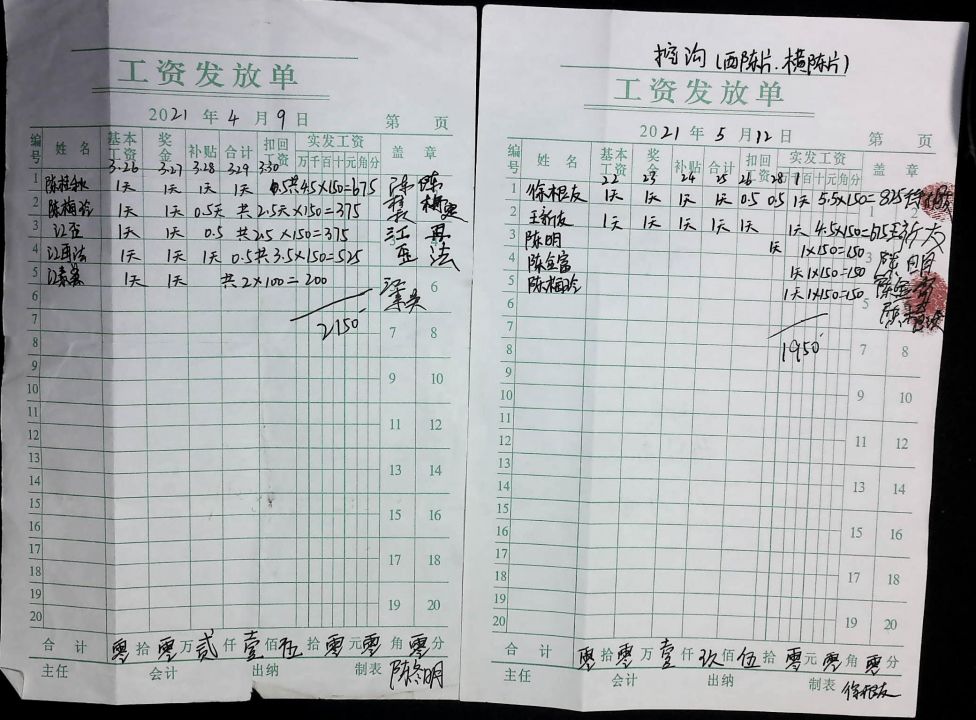 工资发放单
2021 年 4 月 9 日 第 页
编号 姓名 基本工资 奖金 补贴 合计 扣回工资 实发工资 盖章
万 千 百 十 元 角 分
3.26 3.27 3.28 3.29 3.30
1 1天 1天 1天 1天 0.5共4.5×150=675
2 陈梅玲 1天 1天 0.5天 共2.5天×150=375
3 江亚 1天 1天 0.5 共2.5×150=375
4 江再法 1天 1天 1天 0.5共3.5×150=525
5 江素 1天 1天 共2×100=200
6 6
2150
7 7 8
8
9 9 10
10
11 11 12
12
13 13 14
14
15 15 16
16
17 17 18
18
19 19 20
20
合计 零拾零万贰仟壹佰伍拾零元零角零分
主任 会计 出纳 制表 陈冬明
挖沟(西陈片.横陈片)
工资发放单
2021 年 5 月 12 日 第 页
编号 姓名 基本工资 奖金 补贴 合计 扣回工资 实发工资 盖章
万 千 百 十 元 角 分
22 23 24 25 26 28 1
1 徐根友 1天 1天 1天 1天 0.5 0.5 1天 5.5×150=825 徐根友
2 王新友 1天 1天 1天 1天 1天 1天 4.5×150=675 王新友
3 陈明 1天 1×150=150 陈明
4 陈金富 1天 1×150=150 陈金富
5 陈梅玲 1天 1×150=150
6
1950
7 7 8
8
9 9 10
10
11 11 12
12
13 13 14
14
15 15 16
16
17 17 18
18
19 19 20
20
合计 零拾零万壹仟玖佰伍拾零元零角零分
主任 会计 出纳 制表 徐根友